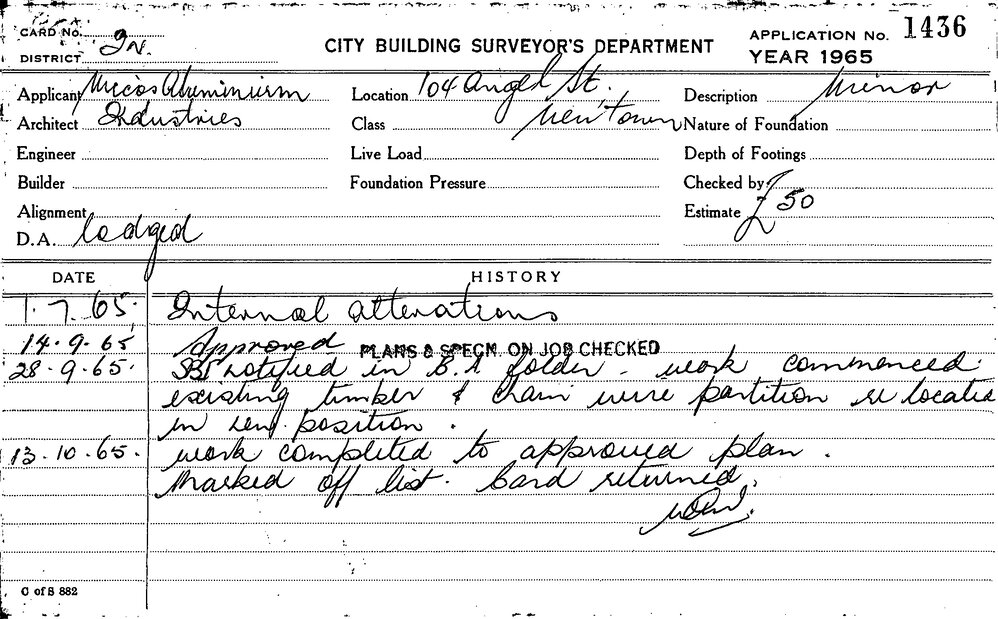 CARD No. 2N. CITY BUILDING SURVEYOR'S DEPARTMENT APPLICATION No. 1436
DISTRICT YEAR 1965
Applicant Micos Aluminium Location 104 Angel St. Description Minor
Architect Industries Class Newtown Nature of Foundation
Engineer Live Load Depth of Footings
Builder Foundation Pressure Checked by
Alignment Estimate £50
D.A. lodged
DATE HISTORY
1.7.65. Internal alterations
14.9.65 Approved PLANS & SPECN. ON JOB CHECKED
28.9.65. notified in B.A folder - work commenced.
existing timber & chain wire partition re locate
in position.
13.10.65. work completed to approved plan.
Marked off list. Card returned.
C of S 882